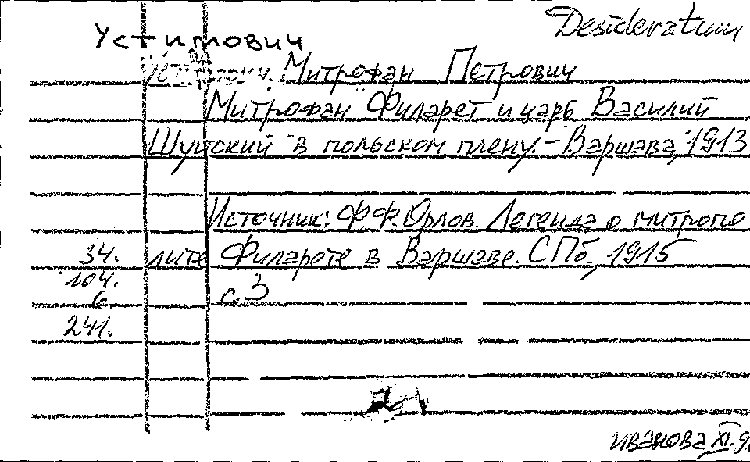 Desideratum
Устимович
Митрофан Петрович
"Митрофан Филарет и царь Василий
Шуйский в польском плену - Варшава, 1913
Источник: Ф.Ф. Орлов Легенда о митропо
34. лите Филарете в Варшаве. СПб, 1915
104.
6 с.3
241.
иванова XI.9